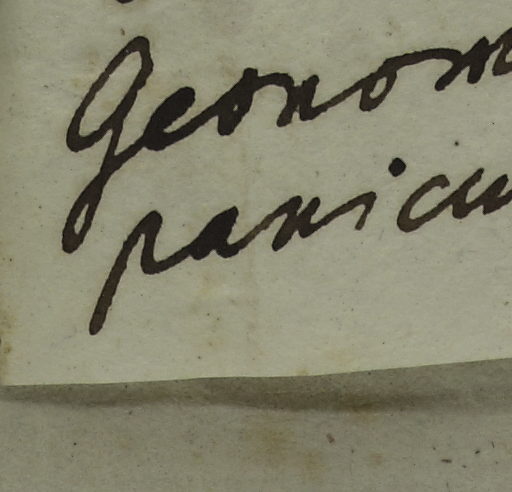 Geonom
panicu